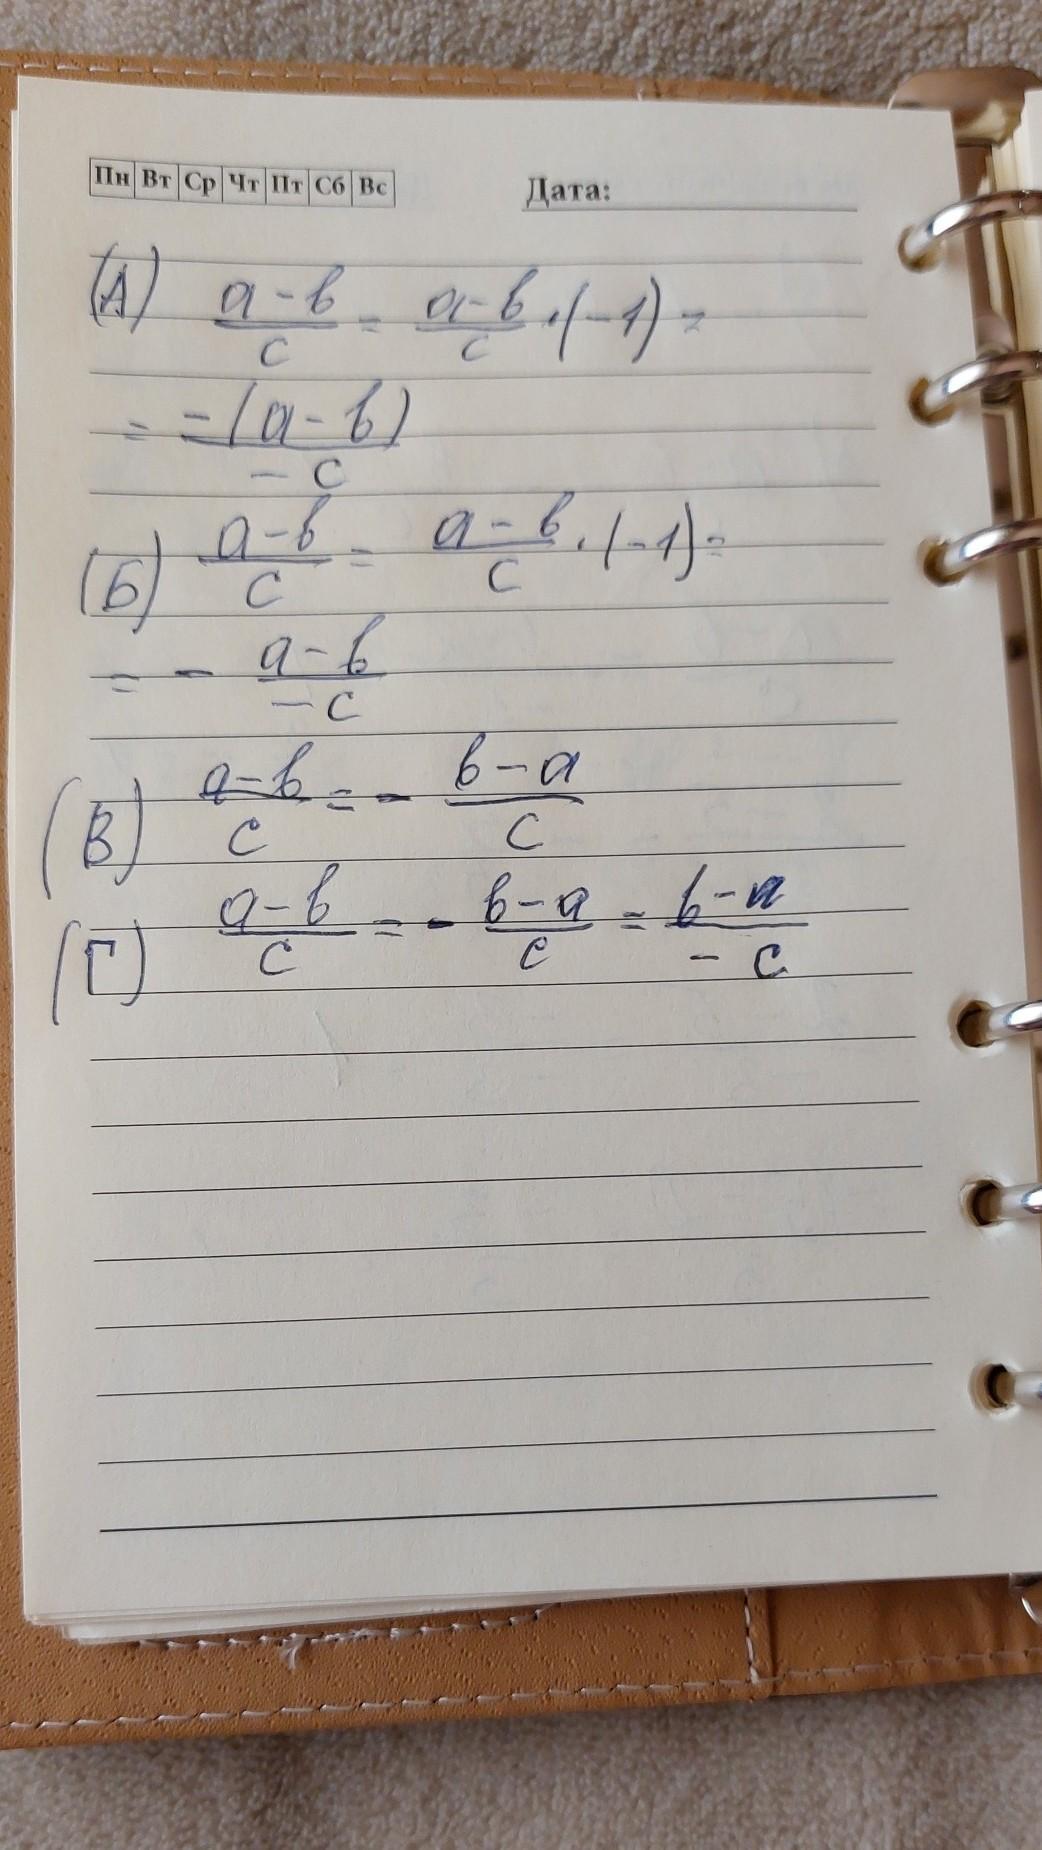 Пн Вт Ср Чт Пт Сб Вс Дата:
(А) a-b/c = a-b/c · (-1) =
= -(a-b)/-c
(Б) a-b/c = a-b/c · (-1) =
= - a-b/-c
(В) a-b/c = - b-a/c
(Г) a-b/c = - b-a/c = b-a/-c